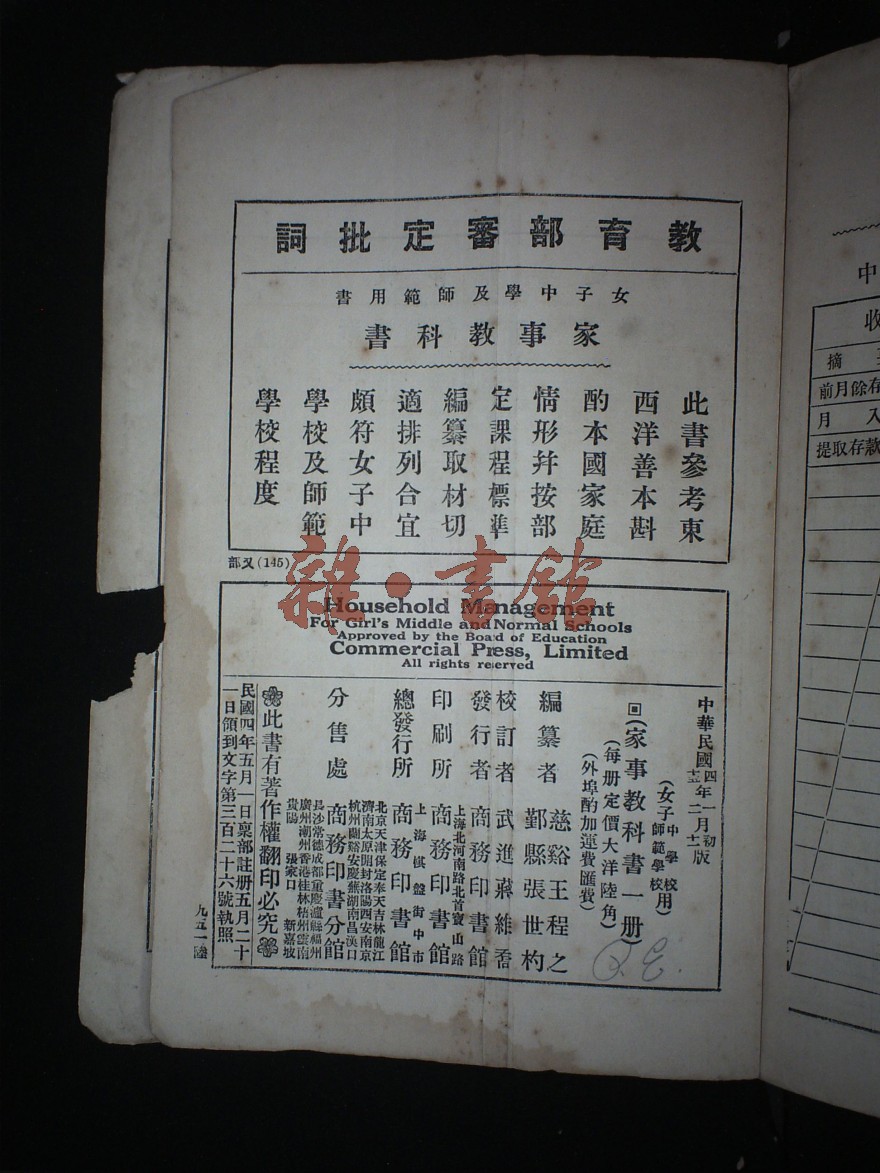 教育部審定批詞
女子中學及師範用書
家事教科書
此書參考東
西洋善本斟
酌本國家庭
情形幷按部
定課程標準
編纂取材切
適排列合宜
頗符女子中
學校及師範
學校程度
(145)又部
雜·書館
Household Management
For Girl's Middle and Normal Schools
Approved by the Boa d of Education
Commercial Press, Limited
All rights reserved
中華民國四年一月初版
(女子中學校師範學校用)
(家事教科書一册)
(每册定價大洋陸角)
(外埠酌加運費匯費)
編纂者 慈谿王程之
鄞縣張世杓
校訂者 武進蔣維喬
發行者 商務印書館
上海北河南路北首寶山路
印刷所 商務印書館
上海棋盤街中市
總發行所 商務印書館
北京天津保定奉天吉林龍江
濟南太原開封洛陽西安南京
杭州蘭谿安慶蕪湖南昌漢口
分售處 商務印書分館
長沙常德成都重慶瀘縣福州
廣州潮州香港桂林梧州雲南
貴陽 張家口 新嘉坡
此書有著作權翻印必究
民國四年五月一日稟部註册五月二十
一日領到文字第三百二十六號執照
九五一陸
中
收
摘
前月餘存
月 入
提取存款